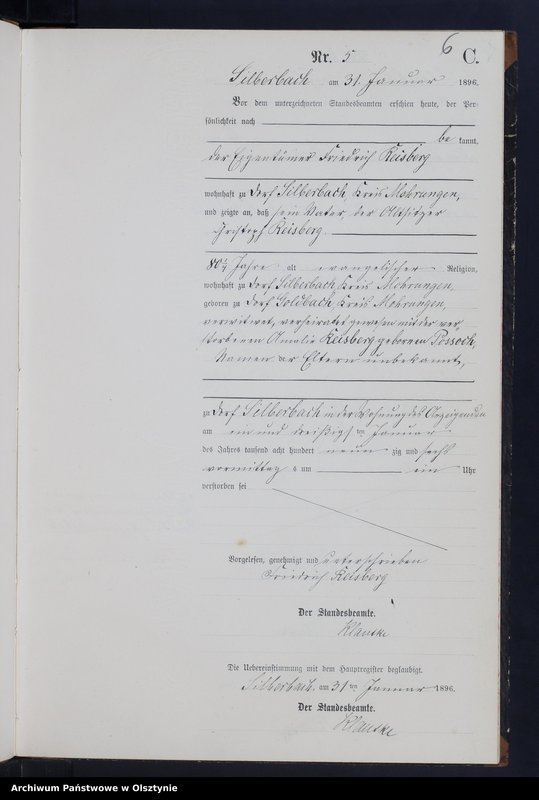 6
Nr. 5 C.
Silberbach am 31. Januar 1896.
Vor dem unterzeichneten Standesbeamten erschien heute, der Per-
sönlichkeit nach
be kannt,
der Eigentümer Friedrich Keisberg
wohnhaft zu Dorf Silberbach, Kreis Mohrungen,
und zeigte an, daß sein Vater, der Altsitzer
Christoph Keisberg.
80½ Jahre alt evangelischer Religion,
wohnhaft zu Dorf Silberbach, Kreis Mohrungen,
geboren zu Dorf Goldbach, Kreis Mohrungen,
verwitwet, verheiratet gewesen mit der ver-
storbenen Amalie Keisberg geborenen Possoch,
Namen der Eltern unbekannt,
zu Dorf Silberbach in der Wohnung des Anzeigenden
am ein und dreißigsten Januar
des Jahres tausend acht hundert neun zig und sechs
vormittag s um ein Uhr
verstorben sei
Vorgelesen, genehmigt und unterschrieben
Friedrich Keisberg
Der Standesbeamte.
Klauske
Die Uebereinstimmung mit dem Hauptregister beglaubigt.
Silberbach, am 31ten Januar 1896.
Der Standesbeamte.
Klauske
Archiwum Państwowe w Olsztynie